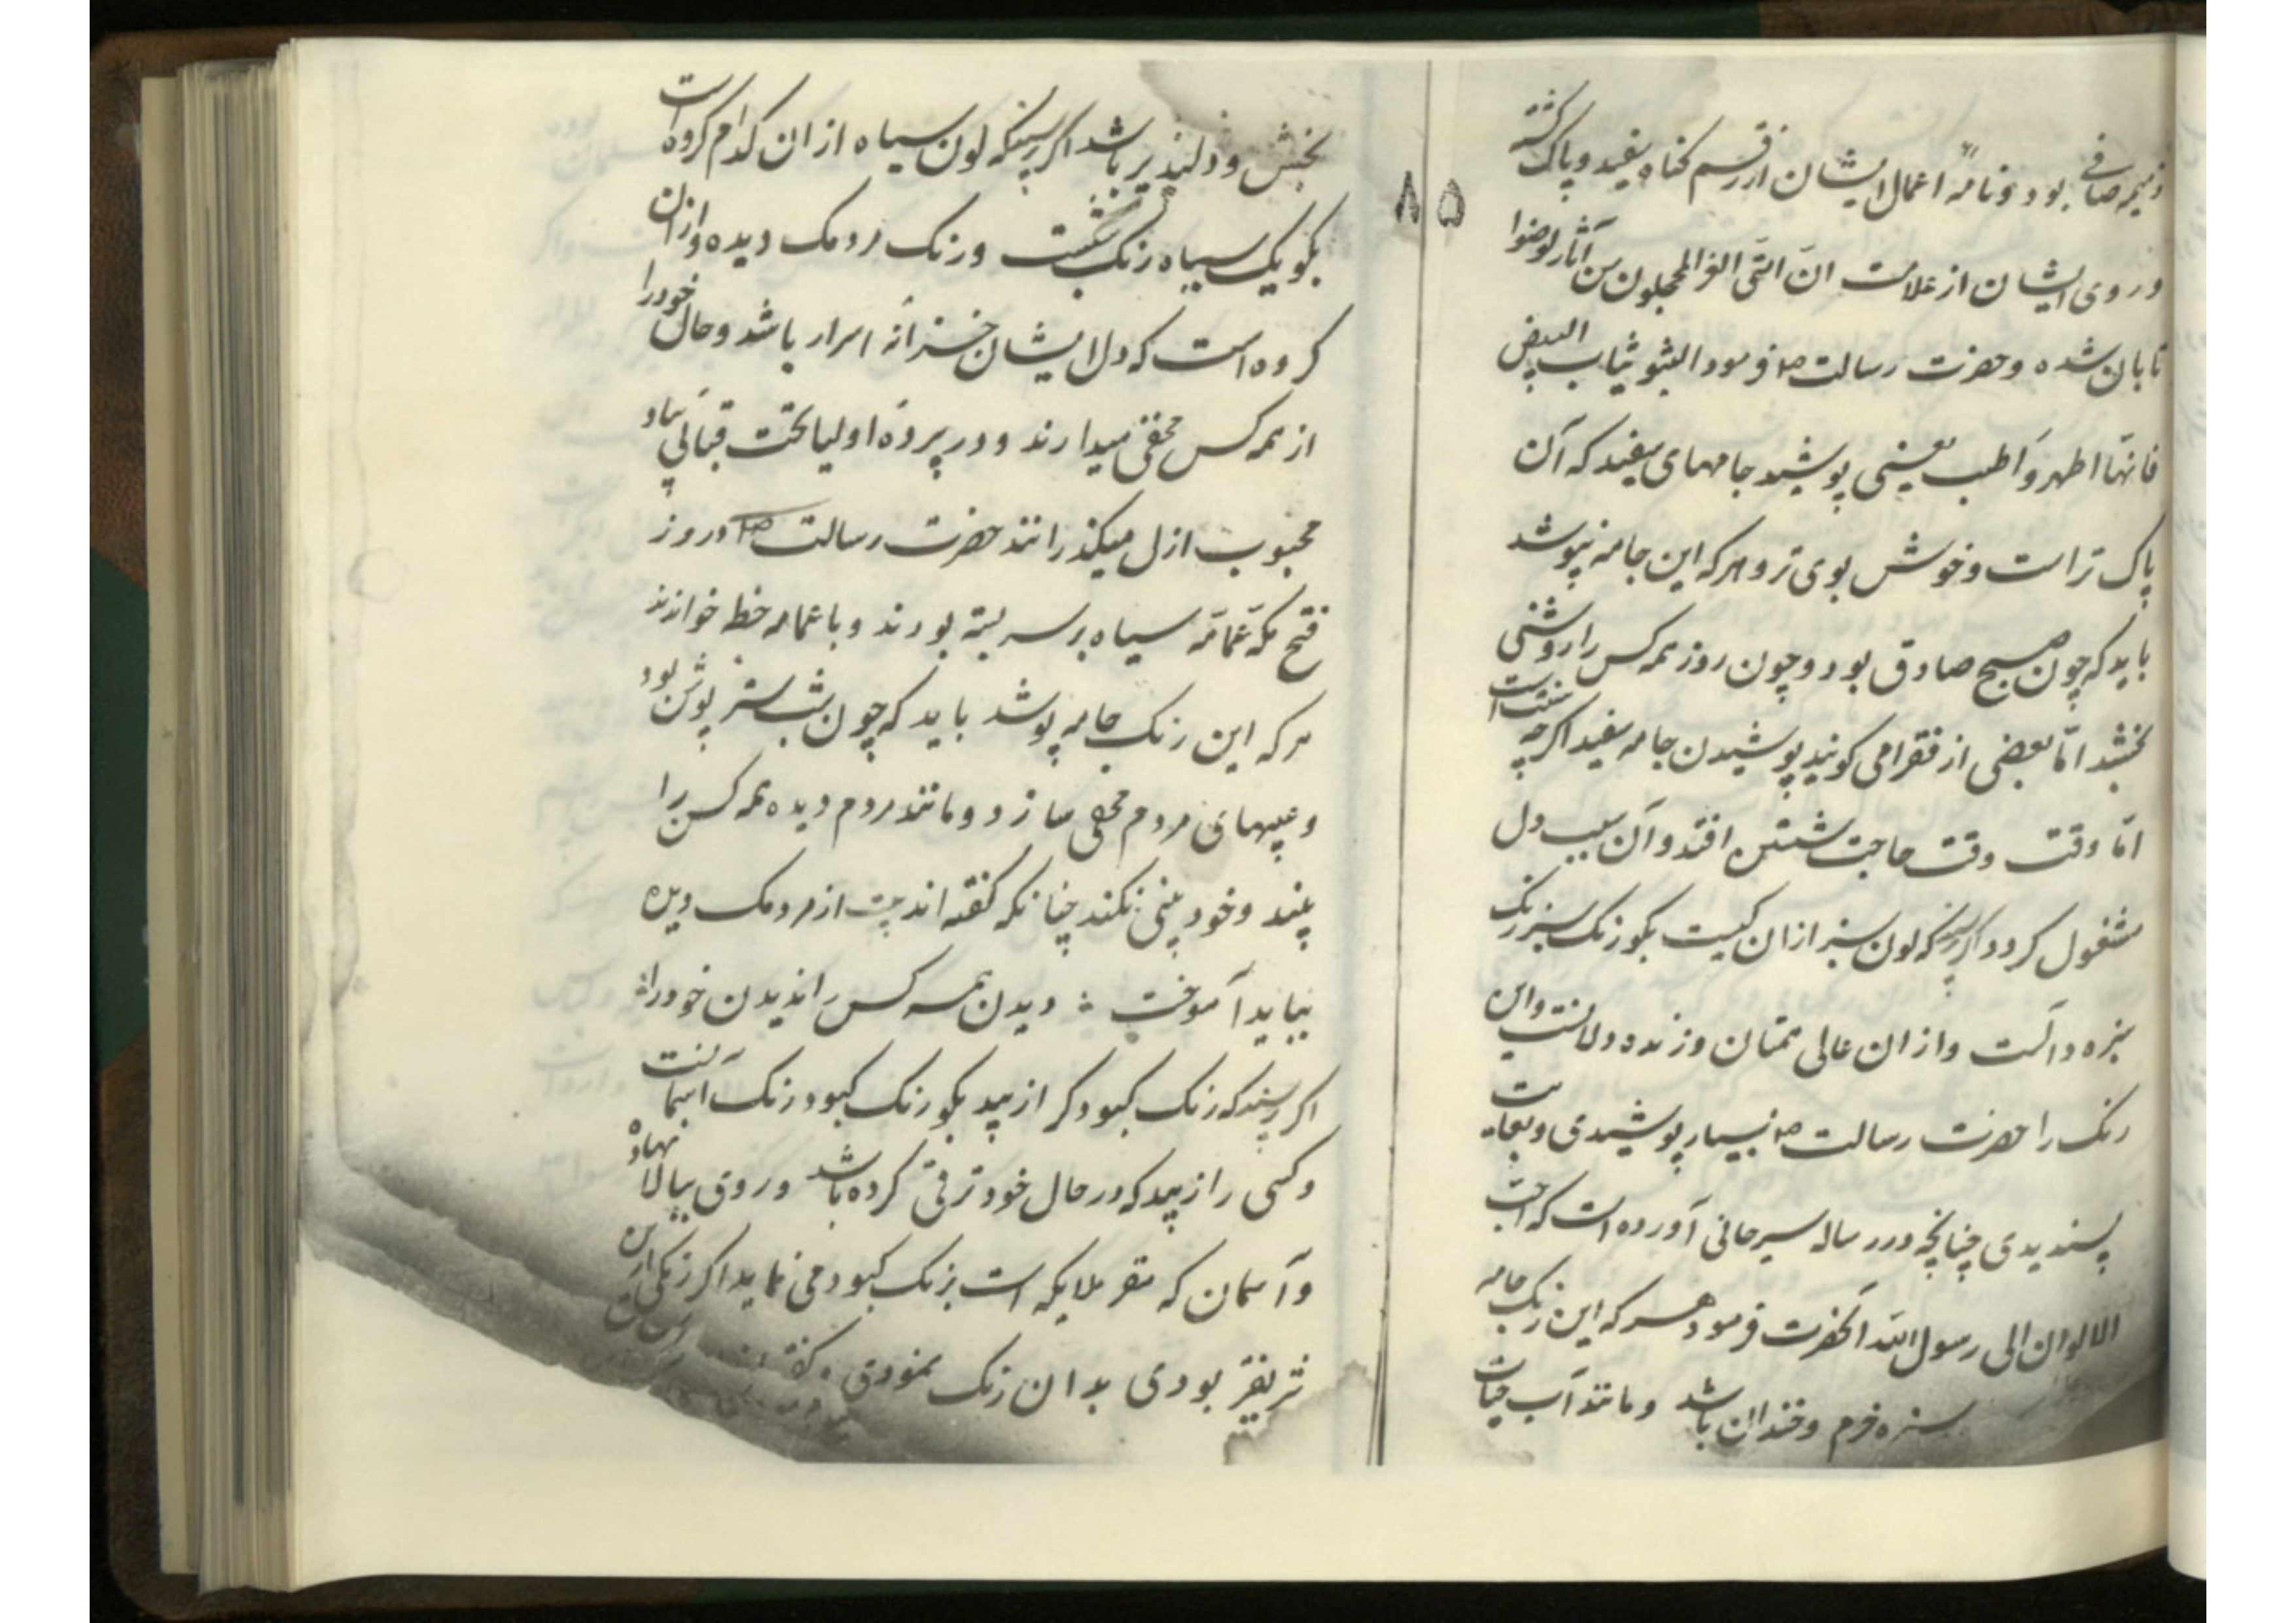 ذمیمه صافی بود و نامهٔ اعمال ایشان از رقم کناه سفید و پاک کشته
و روی ایشان از علامت ان امتی الغر المحجلون من آثار الوضوا
تابان شده و حضرت رسالت ص فرمود البثو ثیاب البیض
فانها اطهر و اطیب یعنی پوشید جامهای سفید که آن
پاک تر است و خوش بوی تر و هر که این جامه بپوشد
باید که چون صبح صادق بود و چون روز همه کس را روشنی
بخشد امّا بعضی از فقرا می کویند پوشیدن جامه سفید اکر چه سنتست
امّا وقت وقت حاجت شستن افتد و آن سبب دل
مشغول کردد اکر پرسند که لون سبز از ان کیست بکو رنک سبز رنک
سبزه و آبست و از ان عالی همتان و زنده دلانست و این
رنک را حضرت رسالت ص بسیار پوشیدی و بغایت
پسندیدی چنانچه در رساله سیرحانی آورده است که احب
الالوان الی رسول الله آنحضرت فرمود هر که این رنک جامه
سبزه خرم و خندان باشد و مانند آب حیات
۸۵
بخش و دلپذیر باشد اکر پرسند که لون سیاه از ان کدام کروه است
بکو یک سیاه رنک شبست و رنک مردمک دیده و از ان
کروه است که دل ایشان خزانهٔ اسرار باشد و حال خود را
از همه کس مخفی میدارند و در پردهٔ اولیا تحت قبائی بیاد
محبوب ازل میکذرانند حضرت رسالت ص در روز
فتح مکّه عمّامّه سیاه بر سر بسته بودند و با عمامه خطبه خواندند
هر که این رنک جامه پوشد باید که چون شب ستر پوش بود
و عیبهای مردم مخفی سازد و مانند مردم دیده همه کس را
بیند و خود بینی نکند چنانکه کفته اند بیت از مردمک دیده
بباید آموخت : دیدن همه کس را ندیدن خود را :
اکر پرسند که رنک کبود کرا زیبد بکو رنک کبود رنک آسمانست
و کسی را زیبد که در حال خود ترقی کرده باشد و روی ببالا نهاده
و آسمان که مقر ملایکه است برنک کبود می نماید اکر رنکی ازین
شریفتر بودی بدان رنک نمودی و کفته اند